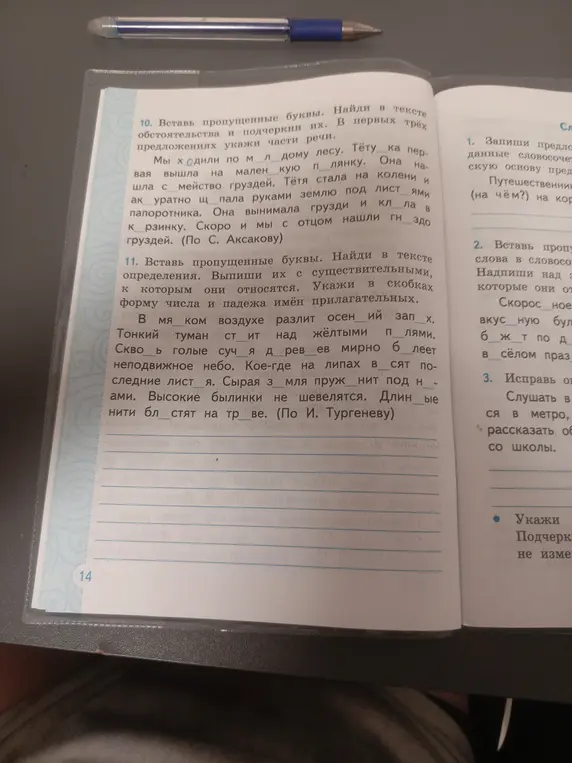 10. Вставь пропущенные буквы. Найди в тексте
обстоятельства и подчеркни их. В первых трёх
предложениях укажи части речи.
Мы ходили по м_л_дому лесу. Тёту_ка пер-
вая вышла на мален_кую п_лянку. Она на-
шла с_мейство груздей. Тётя стала на колени и
ак_уратно щ_пала руками землю под лист_ями
папоротника. Она вынимала грузди и кл_ла в
к_рзинку. Скоро и мы с отцом нашли гн_здо
груздей. (По С. Аксакову)
11. Вставь пропущенные буквы. Найди в тексте
определения. Выпиши их с существительными,
к которым они относятся. Укажи в скобках
форму числа и падежа имён прилагательных.
В мя_ком воздухе разлит осен_ий зап_х.
Тонкий туман ст_ит над жёлтыми п_лями.
Сквo_ь голые суч_я д_рев_ев мирно б_леет
неподвижное небо. Кое-где на липах в_сят по-
следние лист_я. Сырая з_мля пруж_нит под н_-
ами. Высокие былинки не шевелятся. Длин_ые
нити бл_стят на тр_ве. (По И. Тургеневу)
14
1. Запиши предло
данные словосоче
скую основу пред
Путешественни
(на чём?) на кор
2. Вставь проп
слова в словосо
Надпиши над
которые они от
Скорос_ное
вкус_ную бул
б_ж_т по д_
в_сёлом праз
3. Исправь о
Слушать в
ся в метро,
рассказать об
со школы.
• Укажи
Подчерк
не изме